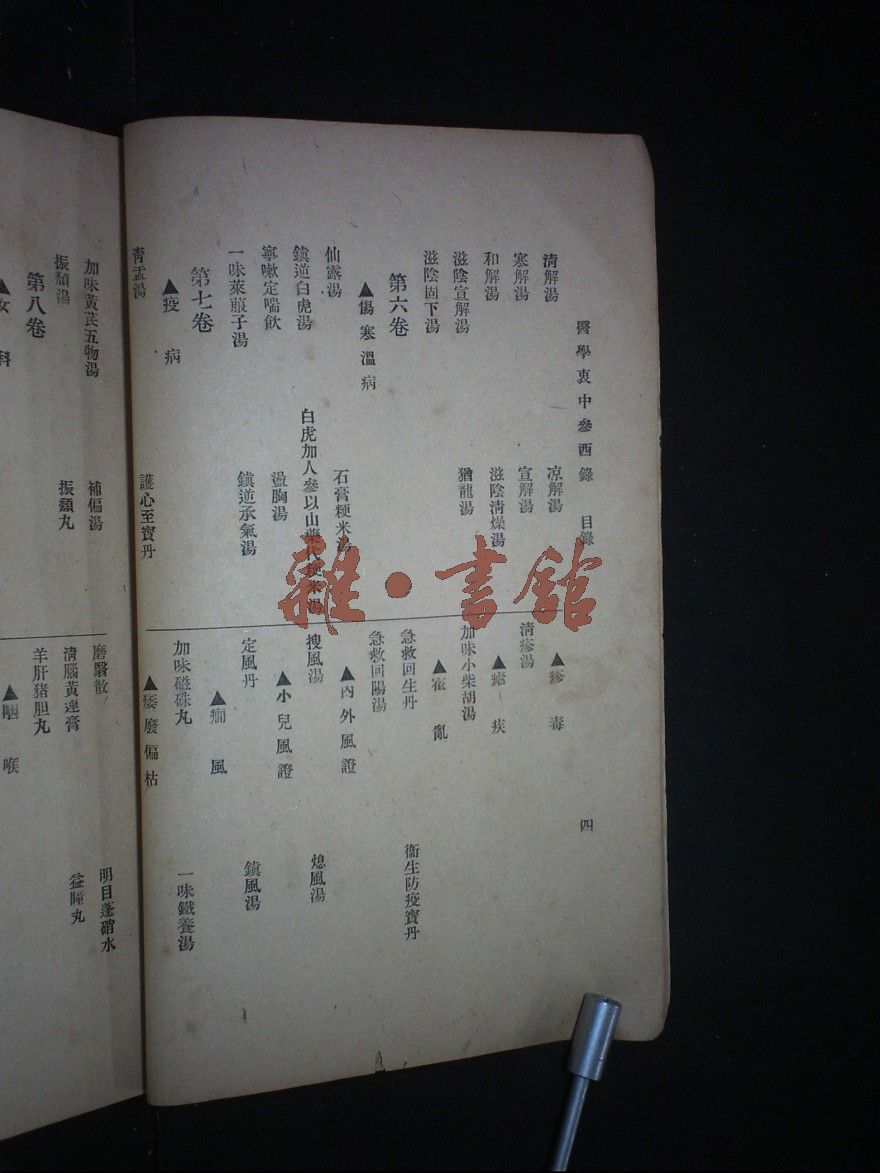 醫學衷中參西錄 目錄 四
清解湯 凉解湯
寒解湯 宣解湯
和解湯 滋陰清燥湯
滋陰宣解湯 猶龍湯
滋陰固下湯
第六卷
▲傷寒溫病
仙露湯 石膏粳米湯
鎮逆白虎湯 白虎加人參以山藥代粳米湯
寧嗽定喘飲 盪胸湯
一味萊菔子湯 鎮逆承氣湯
第七卷
▲疫病
青盂湯 護心至寶丹
▲疹毒
清疹湯
▲瘧疾
加味小柴胡湯
▲霍亂
急救回生丹 衞生防疫寶丹
急救回陽湯
▲內外風證
搜風湯 熄風湯
▲小兒風證
定風丹 鎮風湯
▲癇風
加味磁硃丸 一味鐵養湯
▲痿廢偏枯
加味黃芪五物湯 補偏湯
振頹湯 振頹丸
第八卷
▲女科
磨翳散 明目蓬硝水
清腦黃連膏 益瞳丸
羊肝豬胆丸
▲咽喉
雜·書館